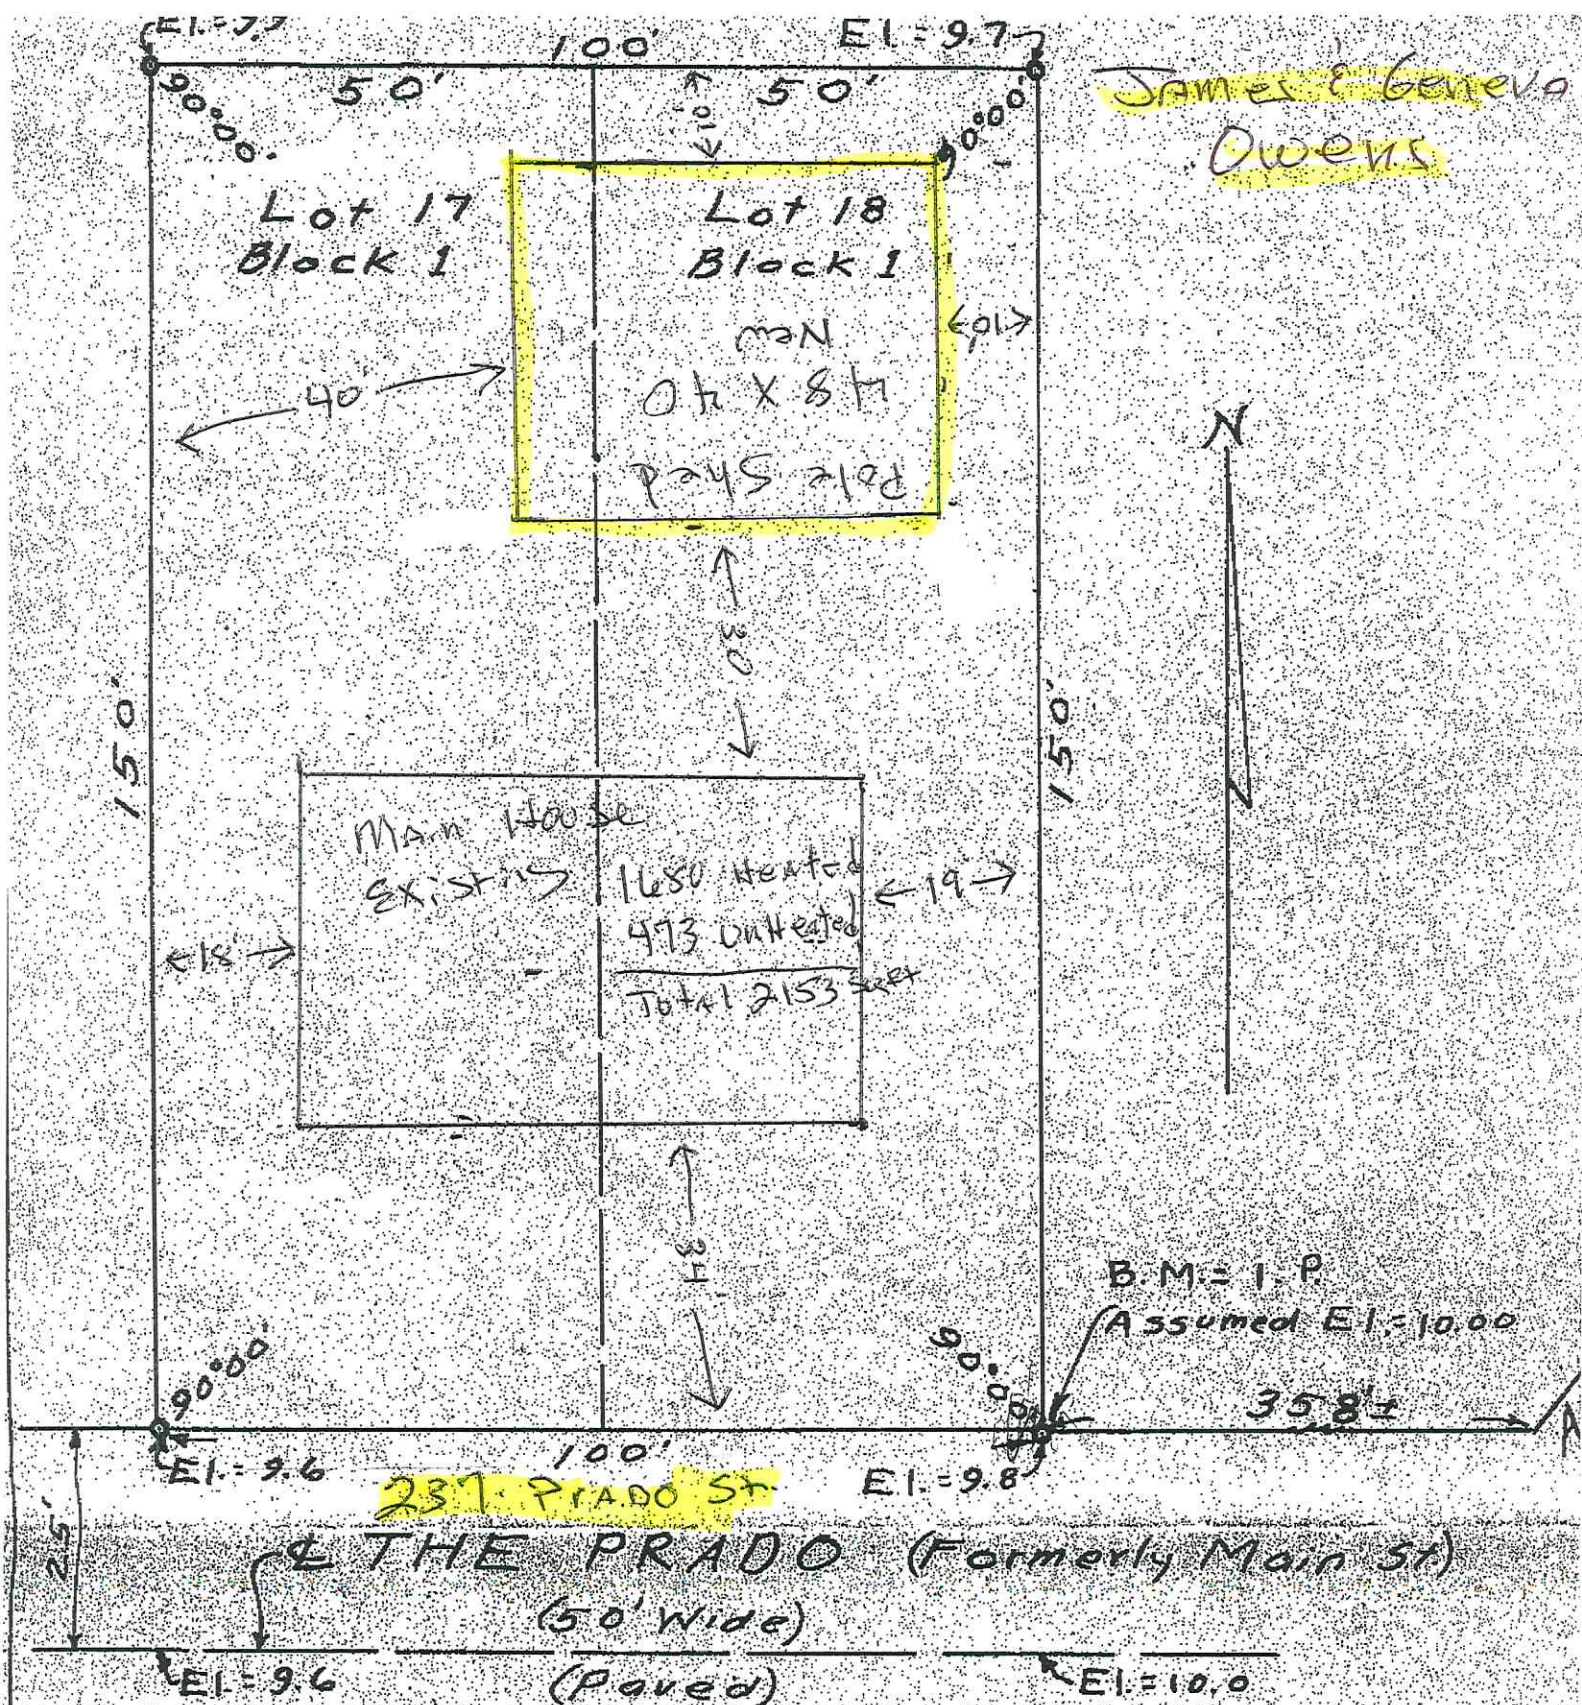 El.=9.9
100'
El.=9.7
James & Geneva
Owens
50'
50'
10'
90°00'
90°00'
Lot 17
Block 1
Lot 18
Block 1
New
48 X 40
Pole Shed
10'
40'
N
30
150'
150'
Main House
Existing
1680 Heated
473 UnHeated
Total 2153 SqFt
19'
18'
34'
B.M.= I.P.
Assumed El.=10.00
90°00'
90°00'
358'±
El.=9.6
100'
El.=9.8
237 Prado St.
25'
℄ THE PRADO (Formerly Main St)
(50' Wide)
(Paved)
El.=9.6
El.=10.0